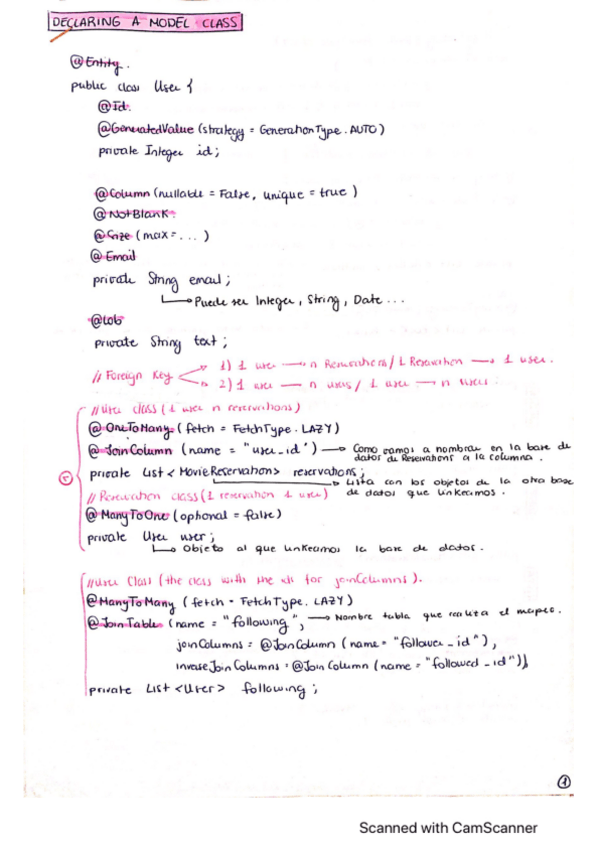 DECLARING A MODEL CLASS
@Entity.
public class User {
@Id.
@GeneratedValue (strategy = GenerationType.AUTO)
private Integer id;
@Column (nullable = False, unique = true)
@NotBlank.
@Size (max = ...)
@Email
private String email;
Puede ser Integer, String, Date ...
@Lob
private String text;
// Foreign Key
1) 1 user → n Reservations / 1 Reservation → 1 user.
2) 1 user — n users / 1 user → n users.
// User class (1 user n reservations)
@OneToMany (fetch = FetchType.LAZY)
@JoinColumn (name = "user_id") → Como vamos a nombrar en la base de
datos de Reservations a la columna.
private List<MovieReservation> reservations;
Lista con los objetos de la otra base
de datos que linkeamos.
// Reservation class (1 reservation 1 user)
@ManyToOne (optional = false)
private User user;
Objeto al que linkeamos la base de datos.
// User Class (the class with the id for joinColumns).
@ManyToMany (fetch = FetchType.LAZY)
@JoinTable (name = "following", → Nombre tabla que realiza el mapeo.
joinColumns = @JoinColumn (name = "follower_id"),
inverseJoinColumns = @JoinColumn (name = "followed_id"))
private List <User> following;
1
Scanned with CamScanner